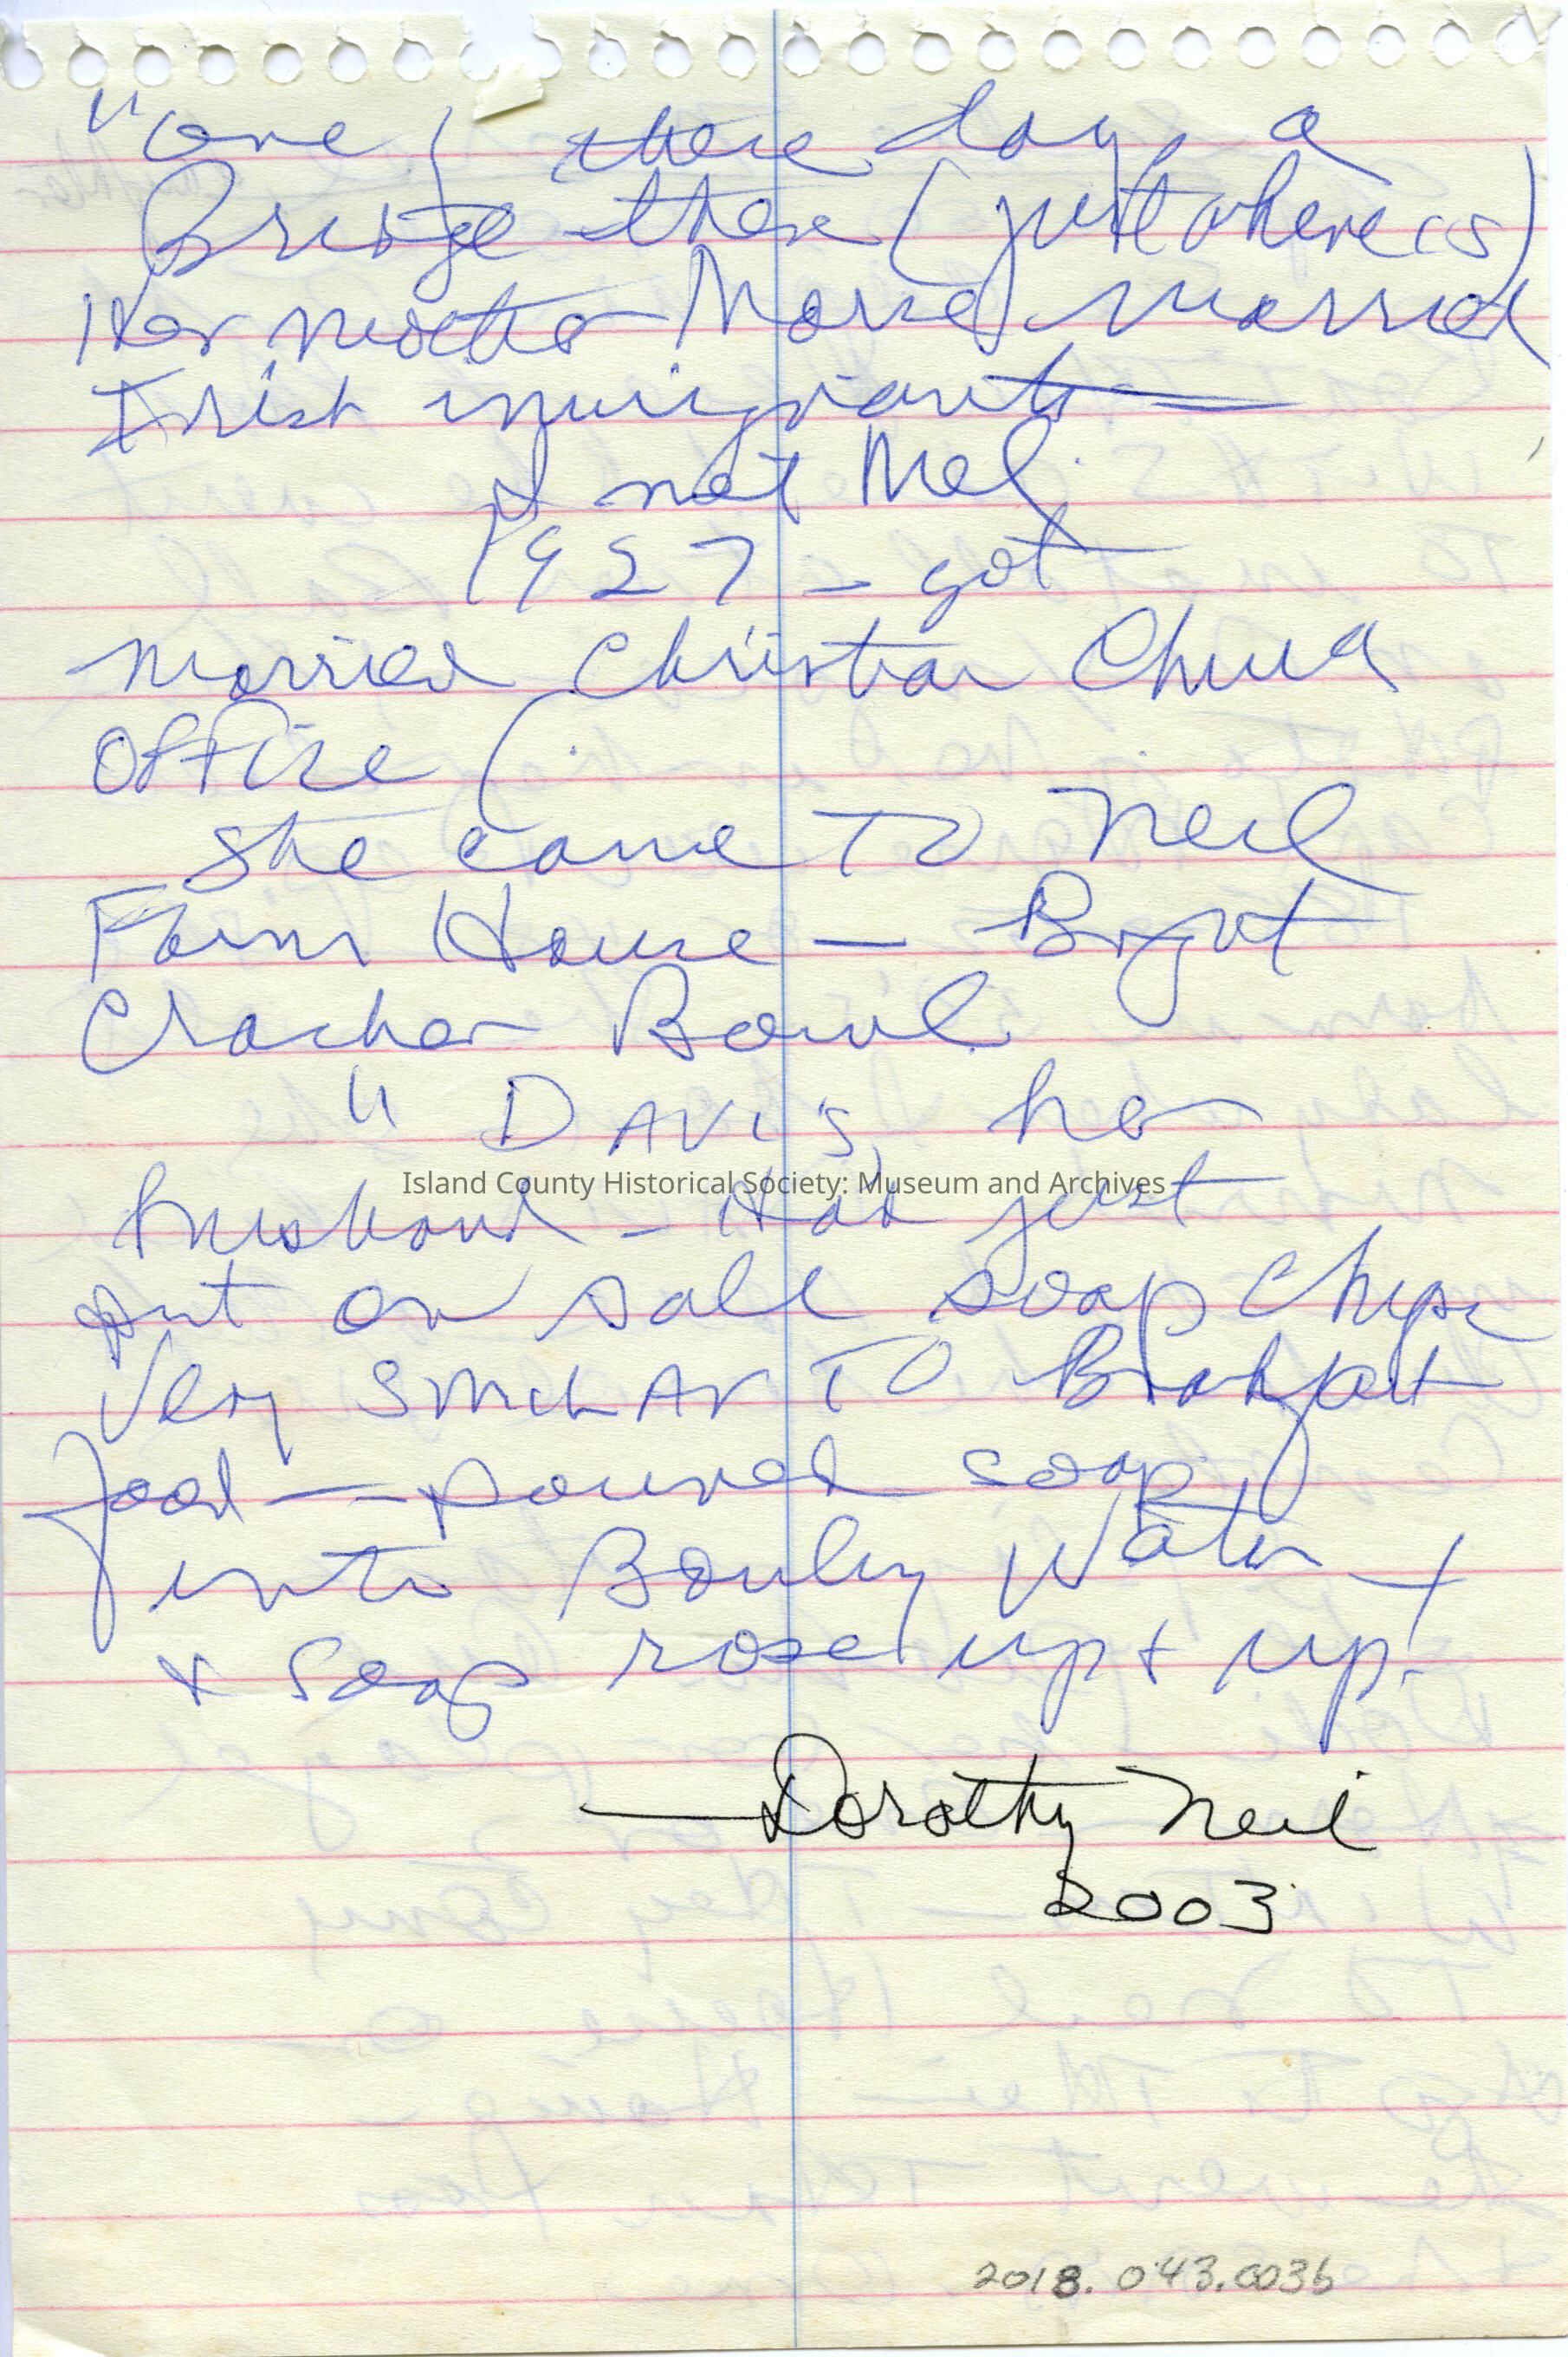 "one of these days a
Bridge there (just where is)
Her mother Marie married
Irish immigrant
I met Mel
1927 - got
married Christian Church
Office
She came to Neil
Farm House — Brgot
Cracker Bowl
" DAVIS, her
husband - Has just
put on sale soap chips
Very similar to Brakfast
food — poured soap
into Bouling Water +
+ Soap rose up + up!
Island County Historical Society: Museum and Archives
— Dorothy Neil
2003
2018.043.003b